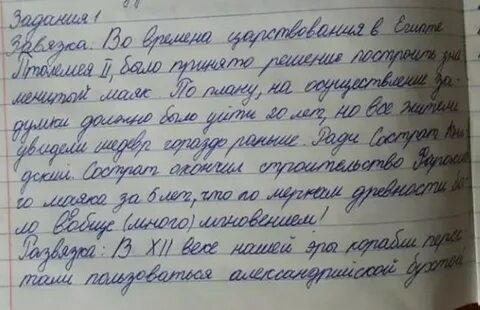 Задания 1
Завязка: Во времена царствования в Египте
Птолемея II, было принято решение построить зна
менитый маяк. По плану, на осуществление за-
думки должно было уйти 20 лет, но все жители
увидели шедевр гораздо раньше. Ради Сострат Кни
дский. Сострат окончил строительство Фаросско
го маяка за 5 лет, что по меркам древности бы
ло вообще (много) мгновением!
Развязка: В XII веке нашей эры корабли перес
тали пользоваться александрийской бухтой